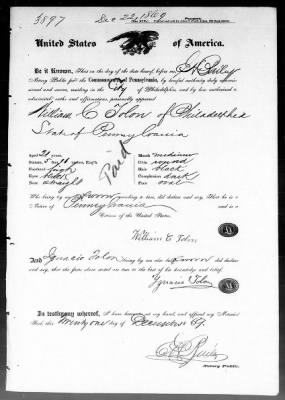 3897
Dec 22, 1869
United States of America.
Be it Known, That on the day of the date hereof, before me
Notary Public for the Commonwealth of Pennsylvania, by lawful authority duly
and sworn, residing in the City of Philadelphia, and by law authorized to
administer oaths and affirmations, personally appeared
William C Tolon of Philadelphia
State of Pennsylvania
Paid
Aged 21 years,
Stature, 5 ft
Forehead high
Eyes
Nose straight
Mouth medium
Chin round
Hair black
Complexion dark
Face oval
Who being by me sworn according to law, did declare and say, That he is a
Native of Pennsylvania and
Citizen of the United States.
William C Tolon
And Ignacio Tolon being by me also duly sworn did declare
and say, that the facts above stated are true to the best of his knowledge and belief.
Ygnacio Tolon
In testimony whereof, I have hereunto set my hand, and affixed my Notarial
Seal, this twenty one day of December 69.
Notary Public.